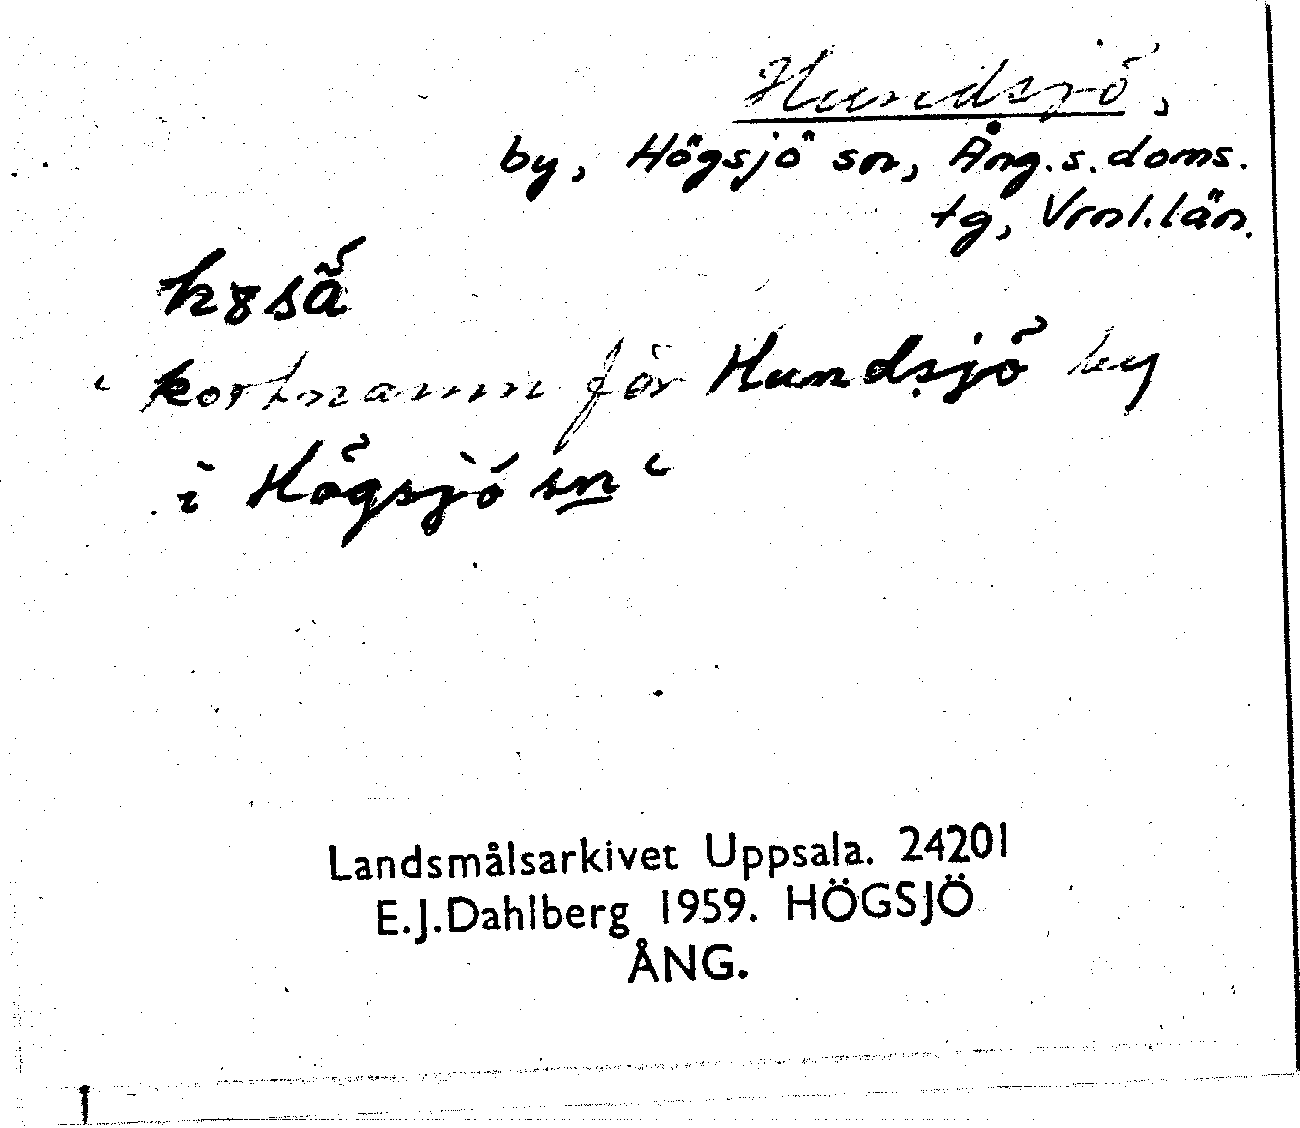 Hundsjö,
by, Högsjö sn, Ång. s. doms.
tg, Vrnl. län.
kortnamn för Hundsjö by
i Högsjö sn
Landsmålsarkivet Uppsala. 24201
E.J.Dahlberg 1959. HÖGSJÖ
ÅNG.